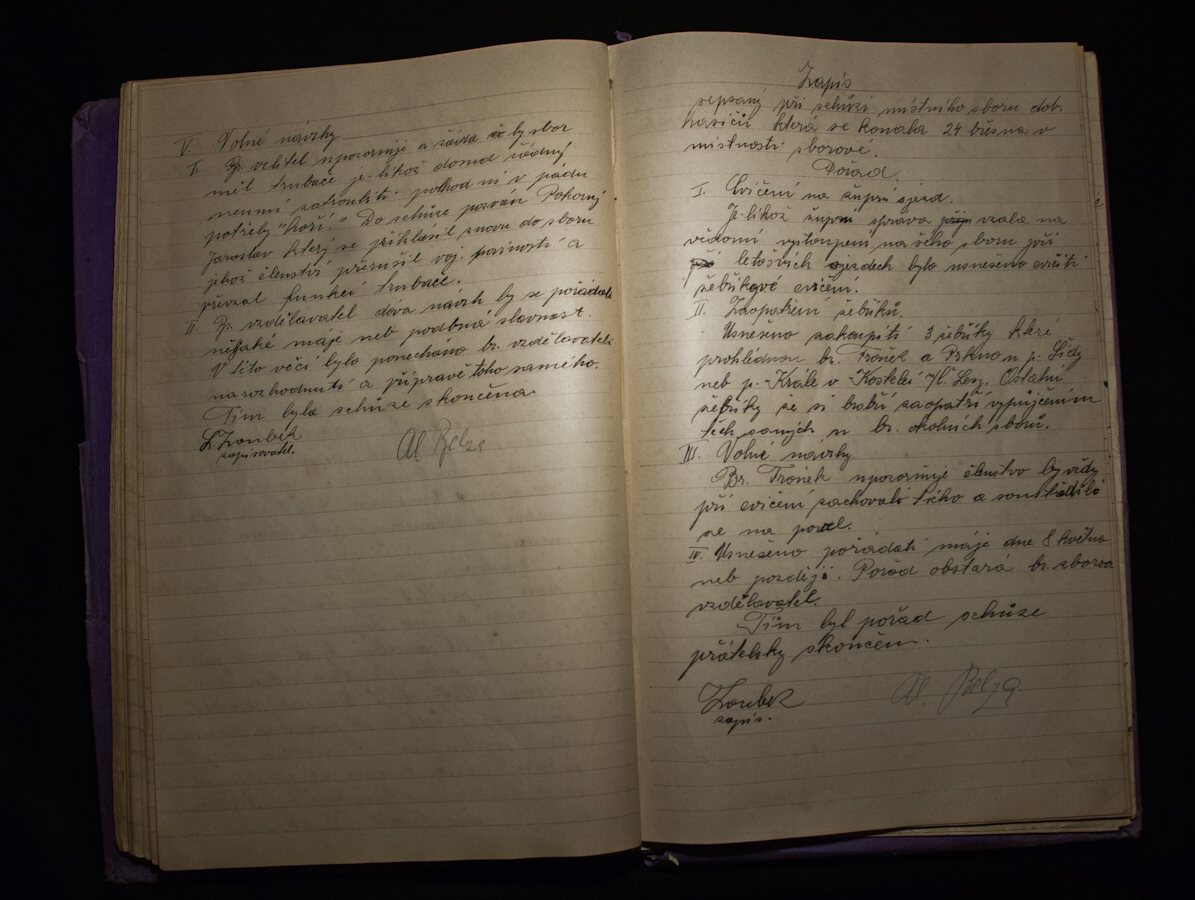 V. Volné návrhy
I. Br. velitel upozorňuje a žádá by sbor
měl trubače je-likož dosud žádný
neumí zatroubiti pochod ni v pádu
potřeby "hoří." Do schůze pozván Pokorný
Jaroslav který se přihlásil znovu do sboru
jehož členství přerušil voj. povinností a
převzal funkci trubače.
II. Br. vzdělavatel dává návrh by se pořádali
nějaké máje neb podobná slavnost.
V této věci bylo ponecháno br. vzdělavateli
na rozhodnutí a přípravě toho samého.
Tím byla schůze skončena
L. Zoubek
zapisovatel.
Al Belza
Zápis
sepsaný při schůzi místního sboru dob.
hasičů která se konala 24 března v
místnosti sborové.
Pořad.
I. Cvičení na župní sjezd.
Je-likož župní správa vzala na
vědomí vystoupení našeho sboru při
letošních sjezdech bylo usneseno cvičiti
žebříkové cvičení.
II. Zaopatření žebříků.
Usneseno zakoupiti 3 žebříky které
prohlédnou br. Troněk a Prkno u p. Šídy
neb p. Krále v Kostelci /Č. Lesy. Ostatní
žebříky že si bratří zaopatří vypůjčením
těch samých u br. okolních sborů.
III. Volné návrhy
Br. Troněk upozorňuje členstvo by vždy
při cvičení zachovalo ticho a soustředilo
se na povel.
IV. Usneseno pořádati máje dne 8 května
neb později. Pořad obstará br. sborov
vzdělavatel.
Tím byl pořad schůze
přátelsky skončen.
Zoubek
zapis.
Al. Belza